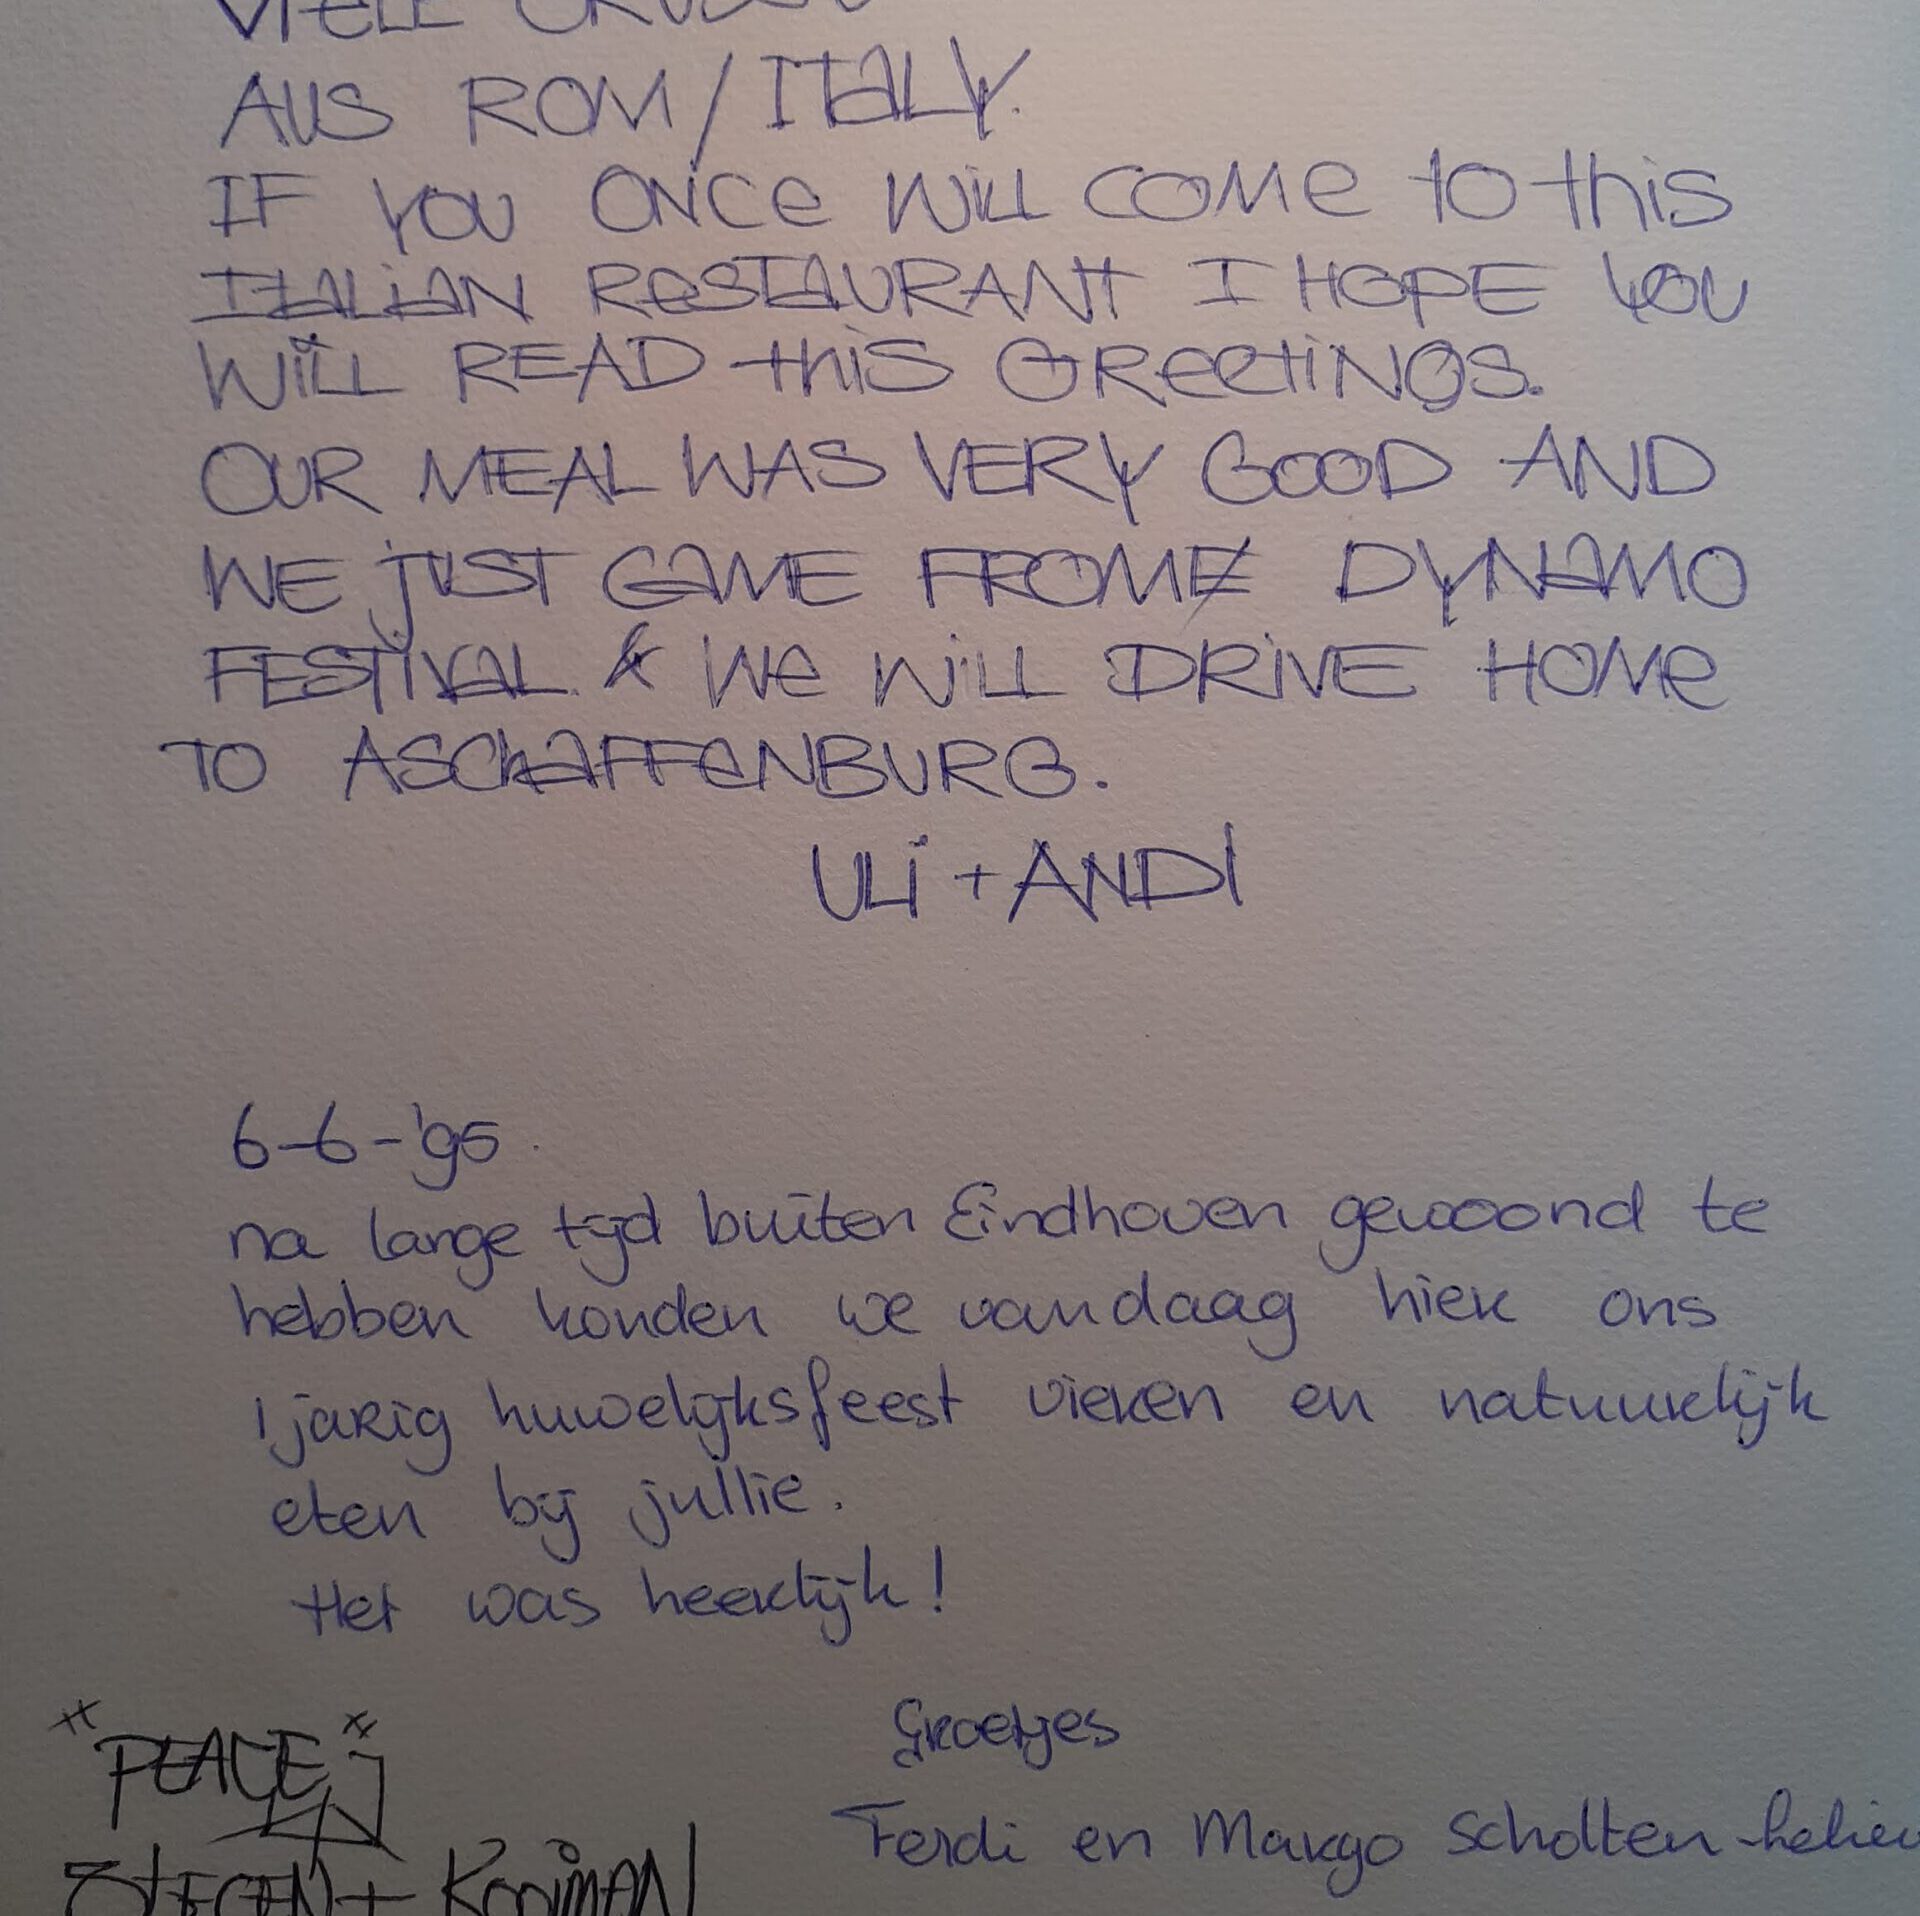 VIELE GRÜSSE
AUS ROM/ITALY.
IF YOU ONCE WILL COME to this
ITALIAN RESTAURANT I HOPE YOU
WILL READ this GREETINGS.
OUR MEAL WAS VERY GOOD AND
WE JUST CAME FROM DYNAMO
FESTIVAL & WE WILL DRIVE HOME
TO ASCHAFFENBURG.
ULI + ANDI
6-6-'95.
na lange tijd buiten Eindhoven gewoond te
hebben konden we vandaag hier ons
1 jarig huwelijksfeest vieren en natuurlijk
eten bij jullie.
Het was heerlijk!
Groetjes
Ferdi en Margo Scholten-
"PEACE"
KOOIMAN